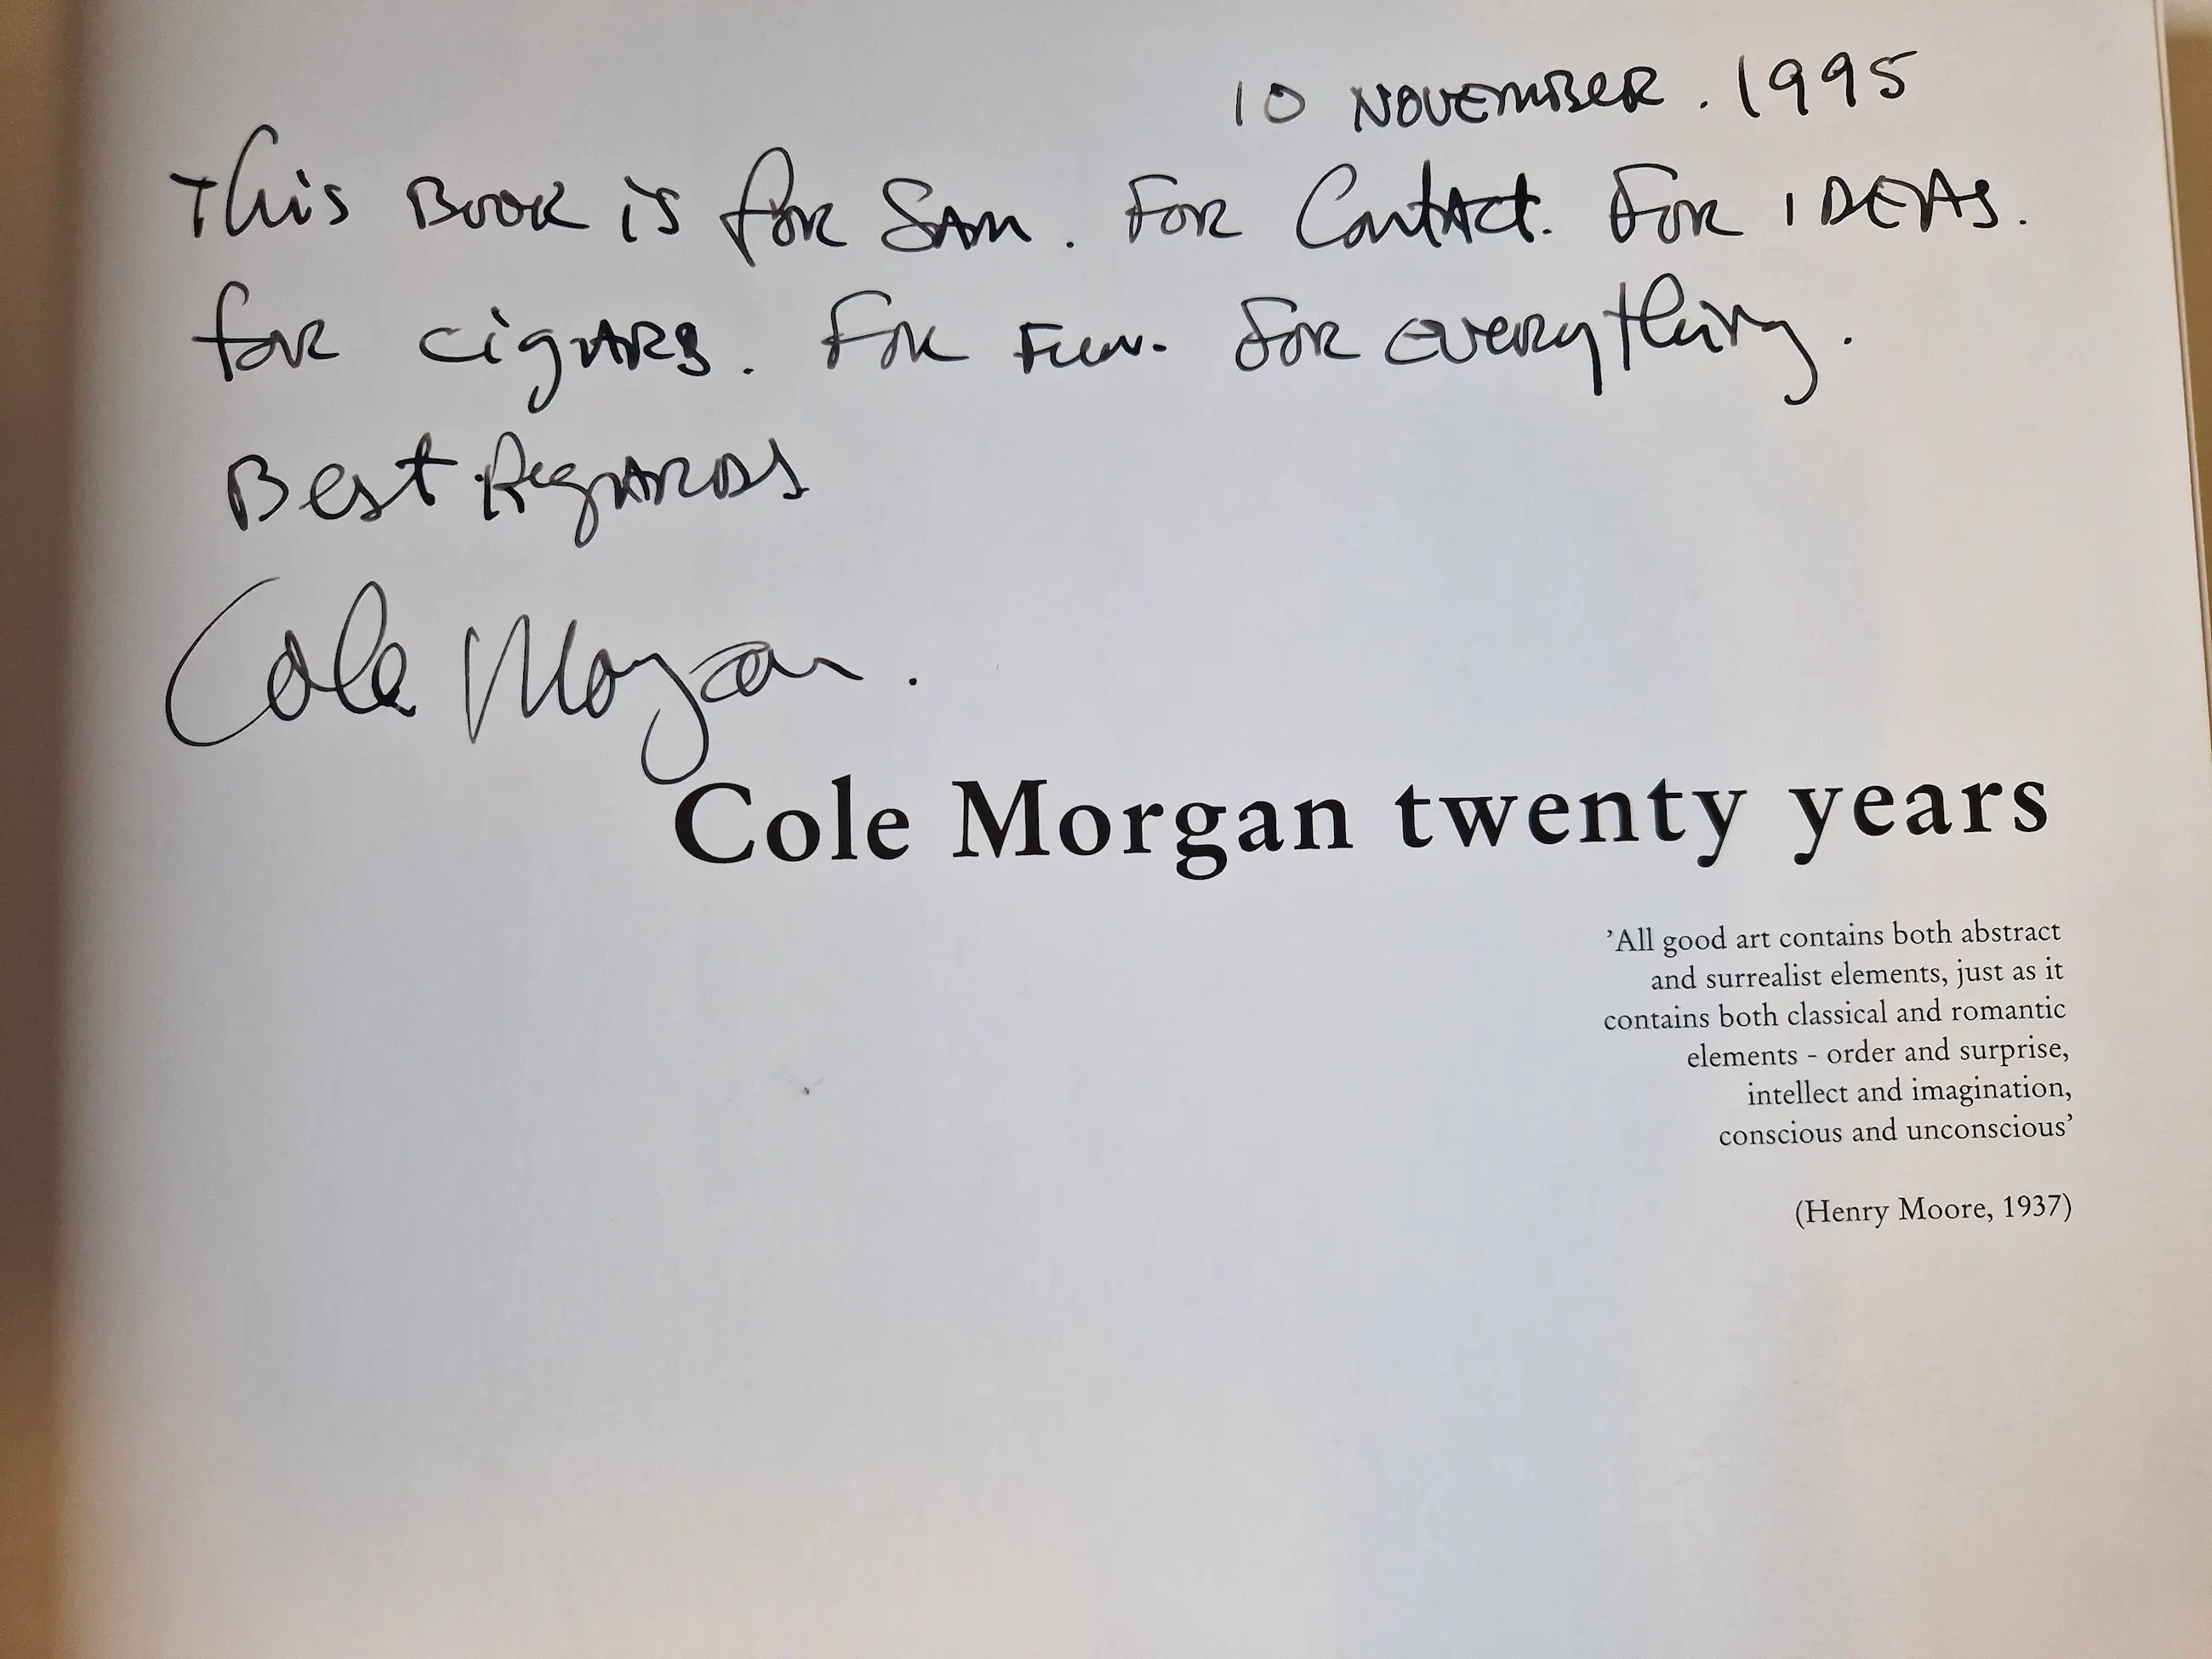 10 NOVEMBER. 1995
This Book is for Sam. For Contact. For IDEAS.
for cigars. For Fun. For everything.
Best Regards
Cole Morgan.
Cole Morgan twenty years
’All good art contains both abstract
and surrealist elements, just as it
contains both classical and romantic
elements - order and surprise,
intellect and imagination,
conscious and unconscious’
(Henry Moore, 1937)